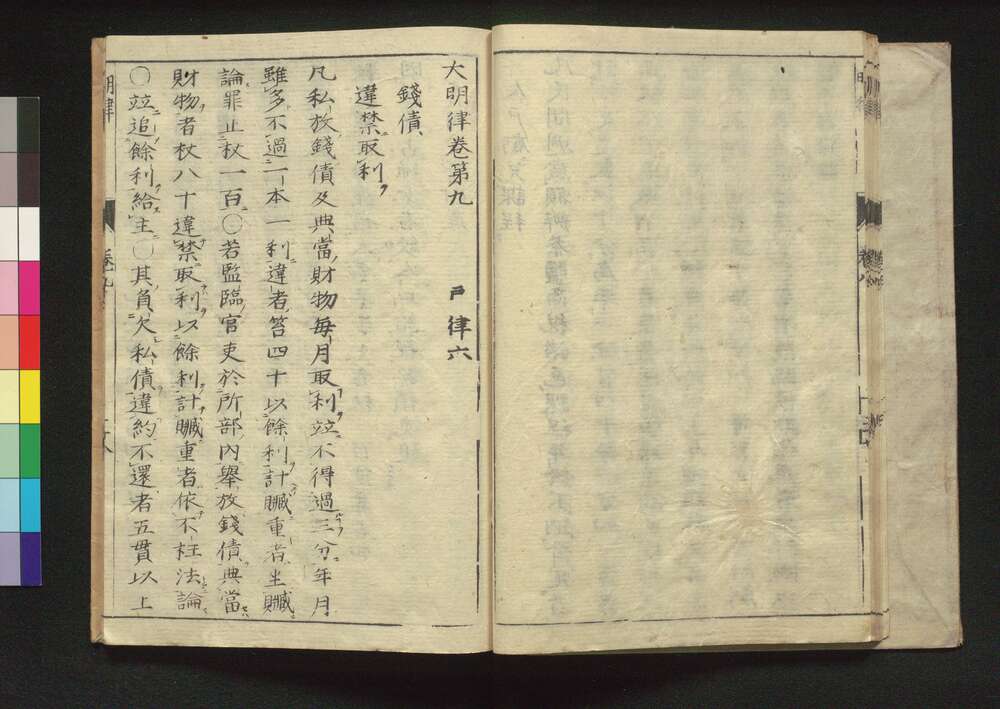 大明律卷第九　戸律六
錢債
違禁取利
凡私放錢債及典當財物每月取利竝不得過三分年月
雖多不過一本一利違者笞四十以餘利計贓重者坐贓
論罪止杖一百〇若監臨官吏於所部內舉放錢債典當
財物者杖八十違禁取利以餘利計贓重者依不枉法論
〇竝追餘利給主〇其負欠私債違約不還者五貫以上